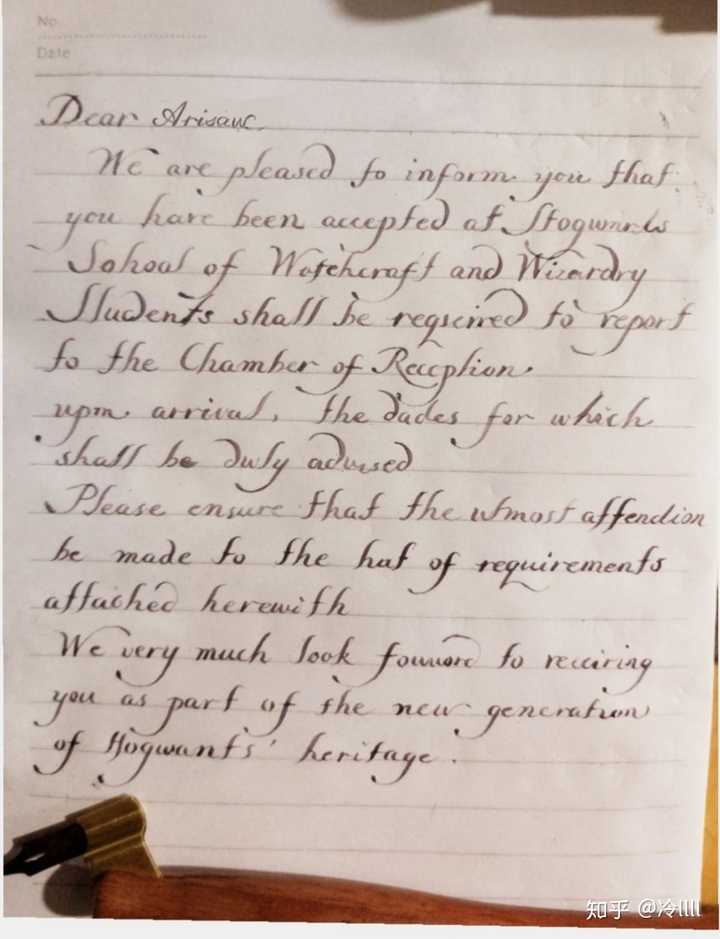 No.
Date
Dear Arisauc.
We are pleased to inform you that
you have been accepted at Hogwarts
School of Watchcraft and Wizardry
Students shall be required to report
to the Chamber of Reception.
upm arrival, the dades for which
shall be duly advised
Please ensure that the utmost affendion
be made to the hat of requirements
attached herewith
We very much look fowword to receiring
you as part of the new generation
of Hogwants' heritage.
知乎 @冷llll